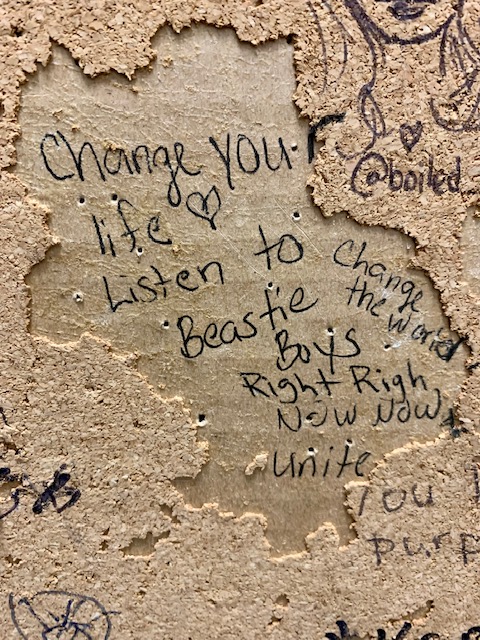 Change your
life ♡
Listen to
Beastie
Boys
Change
the world
Right Righ
Now Now
unite
@boiled
You